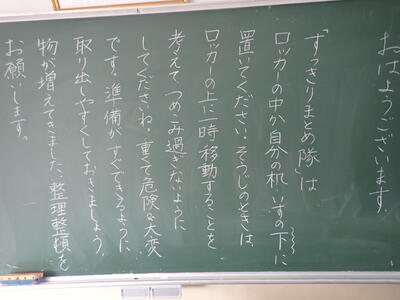 おはようございます。
「すっきりまとめ隊」は
ロッカーの中か自分の机、いすの下に
置いてください。そうじのときは、
ロッカーの上に一時移動することを
考えて つめこみ過ぎないように
してくださいね。重くて危険&大変
です。準備が すぐできるように
取り出しやすくしておきましょう。
物が増えてきました。整理整頓を
お願いします。